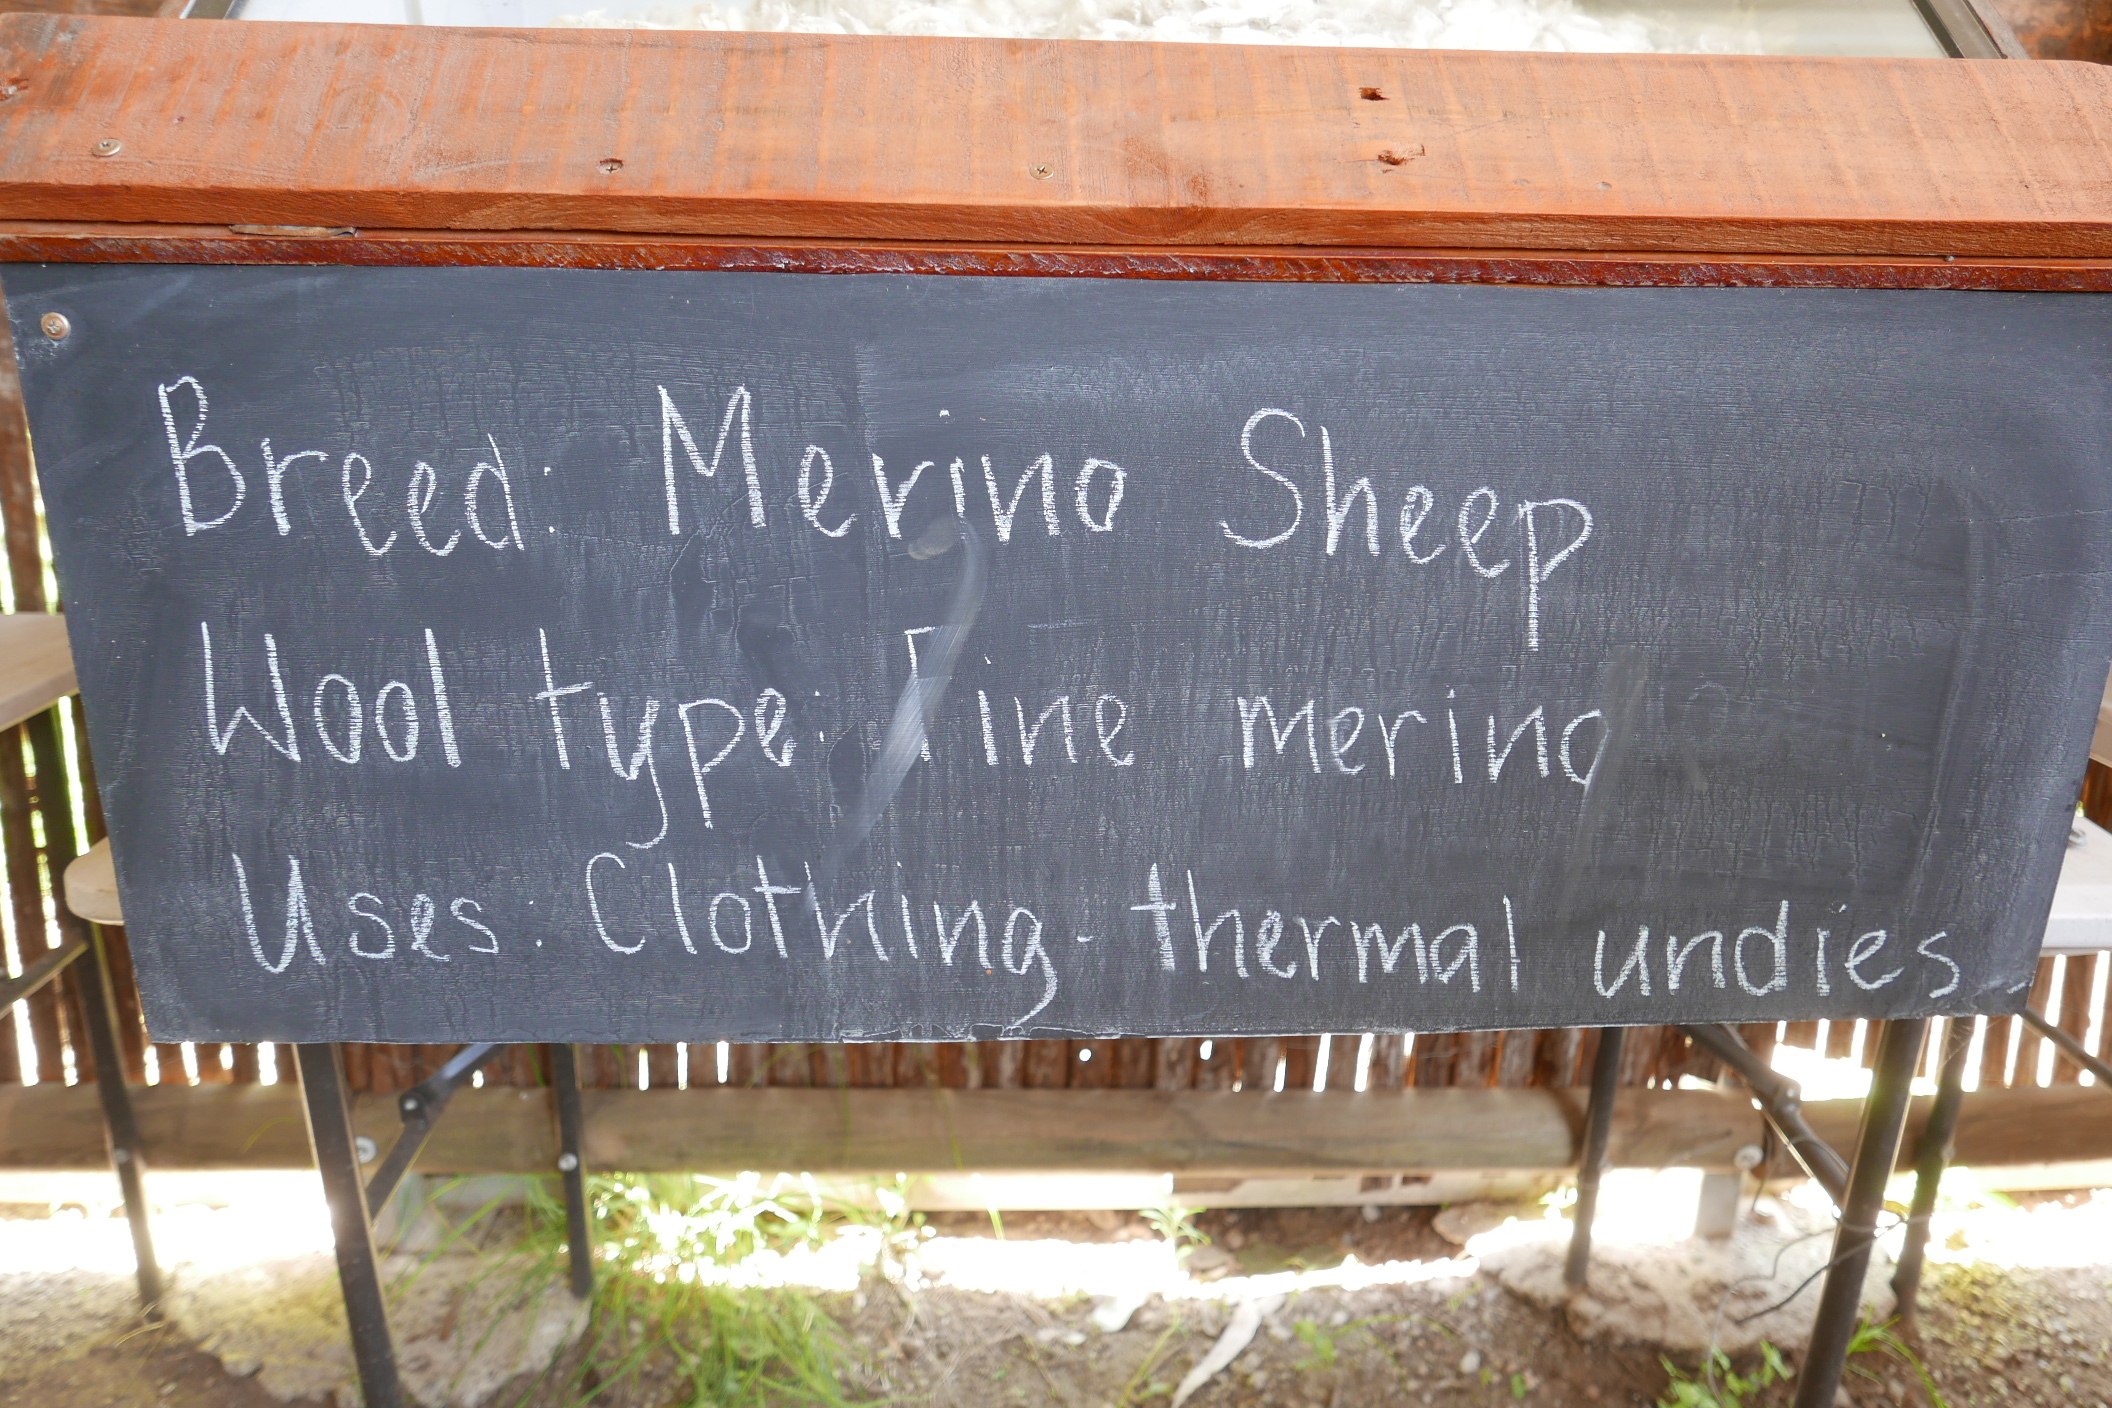 Breed: Merino Sheep
Wool type: Fine merino
Uses: Clothing. thermal undies.